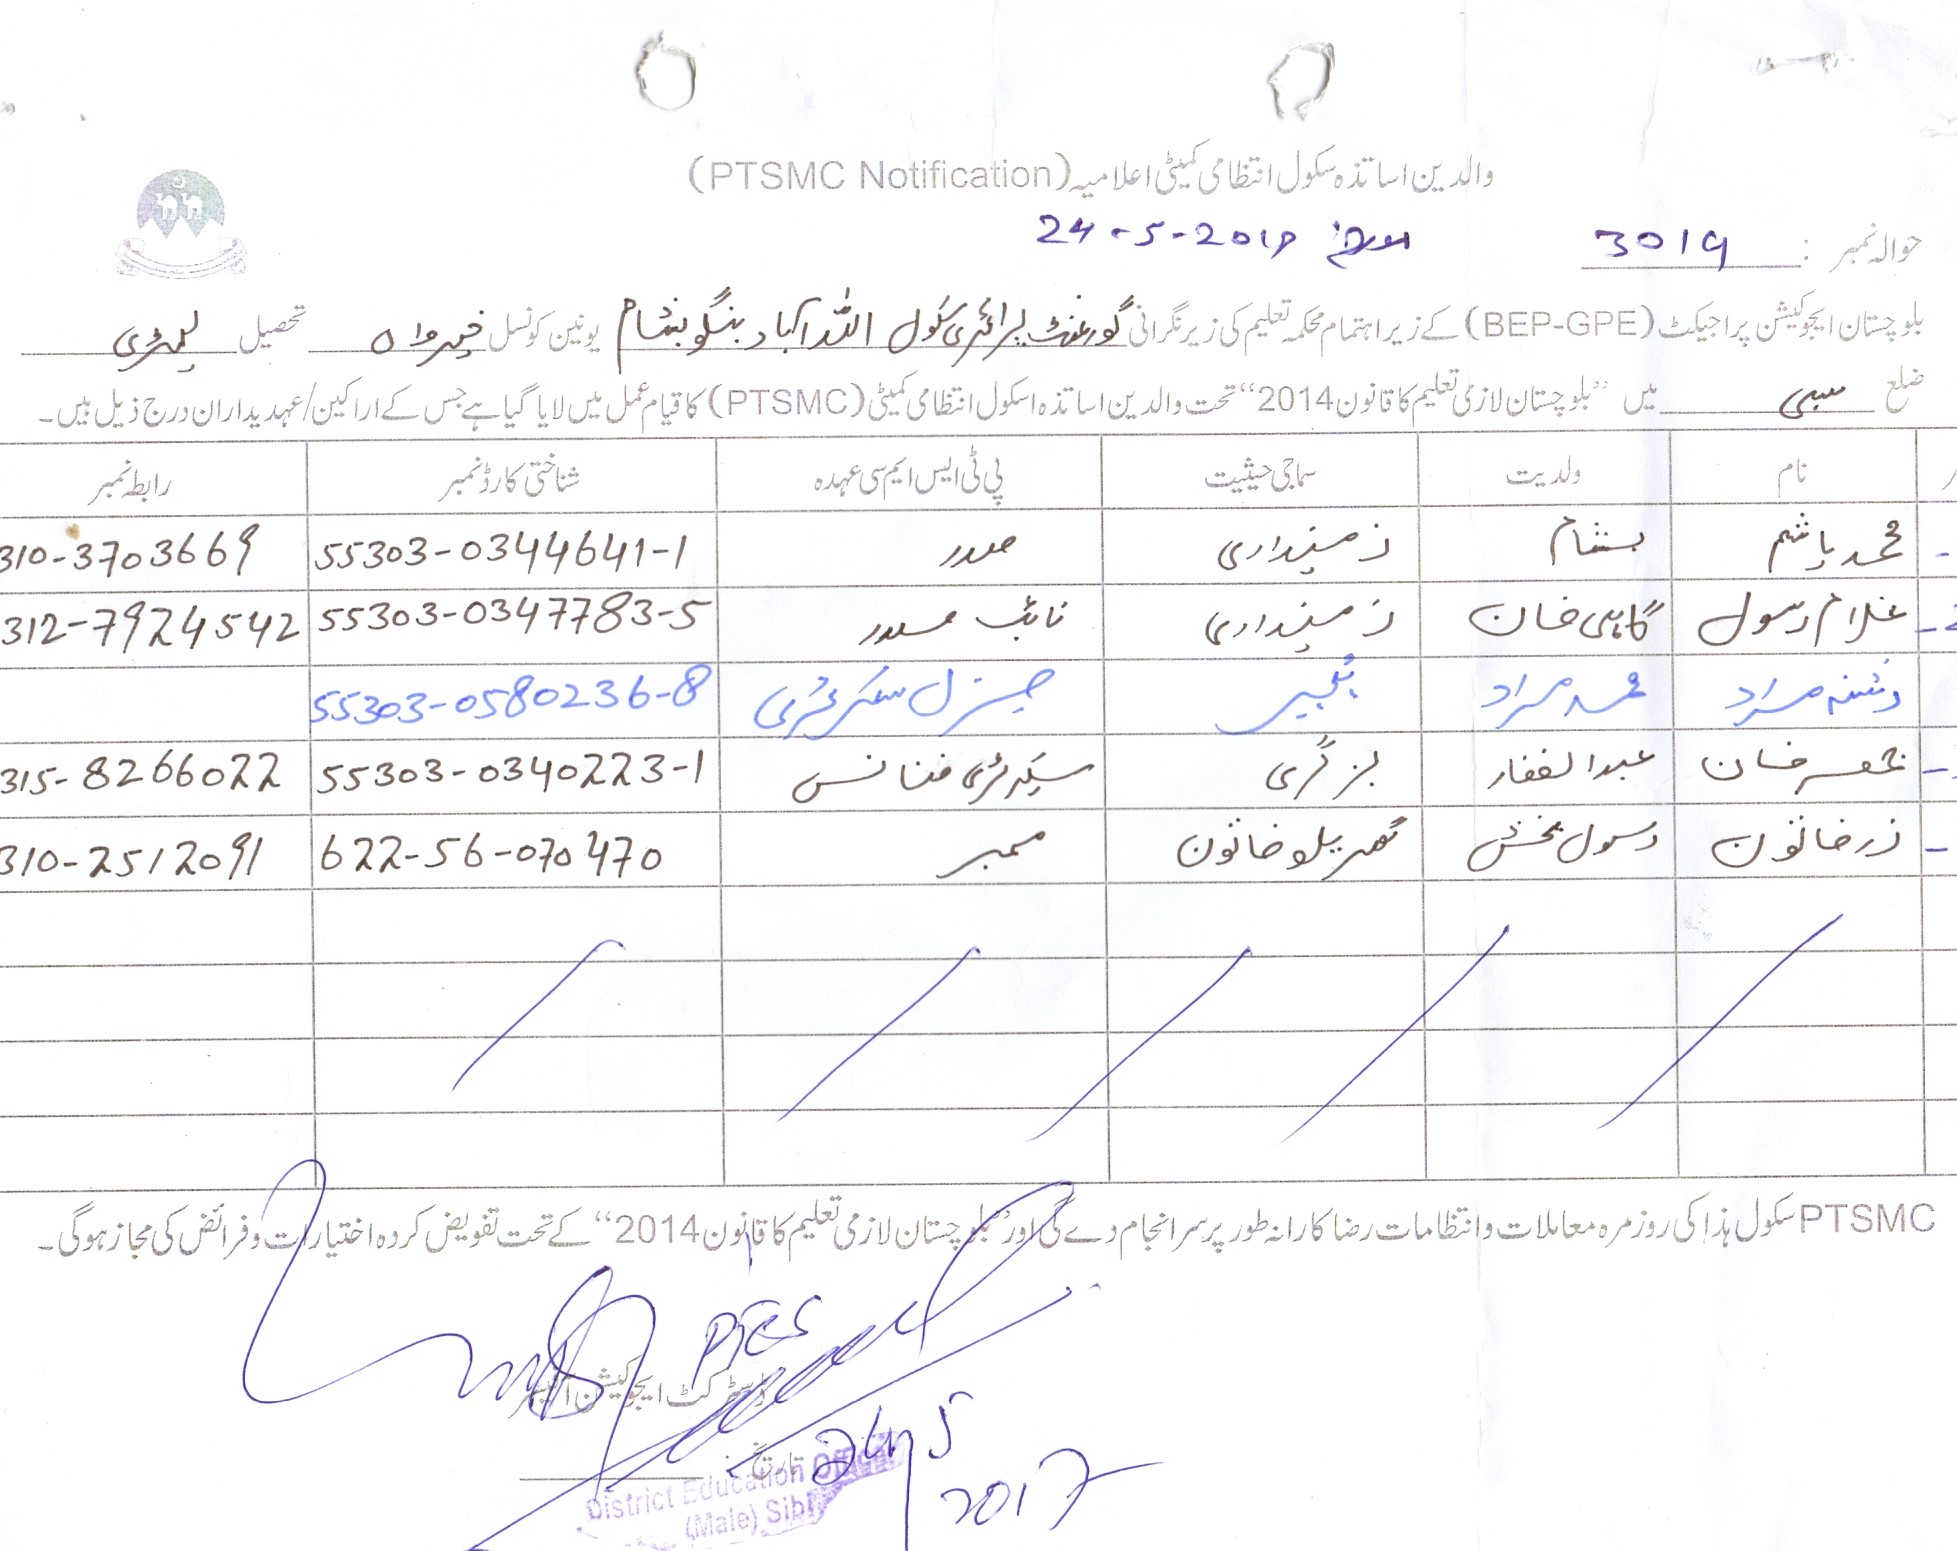 والدین اساتذہ سکول انتظامی کمیٹی اعلامیہ (PTSMC Notification)
حوالہ نمبر : 3019 مورخہ 24-5-2017
بلوچستان ایجوکیشن پراجیکٹ (BEP-GPE) کے زیر اہتمام محکمہ تعلیم کی زیر نگرانی گورنمنٹ پرائمری سکول اللہ آباد بنگو بشام یونین کونسل تحصیل لہڑی
ضلع سبی میں ”بلوچستان لازمی تعلیم کا قانون 2014“ تحت والدین اساتذہ اسکول انتظامی کمیٹی (PTSMC) کا قیام عمل میں لایا گیا ہے جس کے اراکین/عہدیداران درج ذیل ہیں۔
نام ولدیت سماجی حیثیت پی ٹی ایس ایم سی عہدہ شناختی کارڈ نمبر رابطہ نمبر
محمد ہاشم بشام زمینداری صدر 55303-0344641-1 310-3703669
غلام رسول گاہی خان زمینداری نائب صدر 55303-0347783-5 312-7924542
مراد محمد مراد ٹیچر جنرل سیکرٹری 55303-0580236-8
خان عبدالغفار بزگری سیکرٹری فنانس 55303-0340223-1 315-8266022
زرخاتون رسول بخش گھریلو خاتون ممبر 622-56-070470 310-2512091
PTSMC سکول ہذا کی روزمرہ معاملات و انتظامات رضا کارانہ طور پر سرانجام دے گی اور ”بلوچستان لازمی تعلیم کا قانون 2014“ کے تحت تفویض کردہ اختیارات و فرائض کی مجاز ہوگی۔
ڈسٹرکٹ ایجوکیشن آفیسر
تاریخ:
2017
District Education Officer
(Male) Sibi